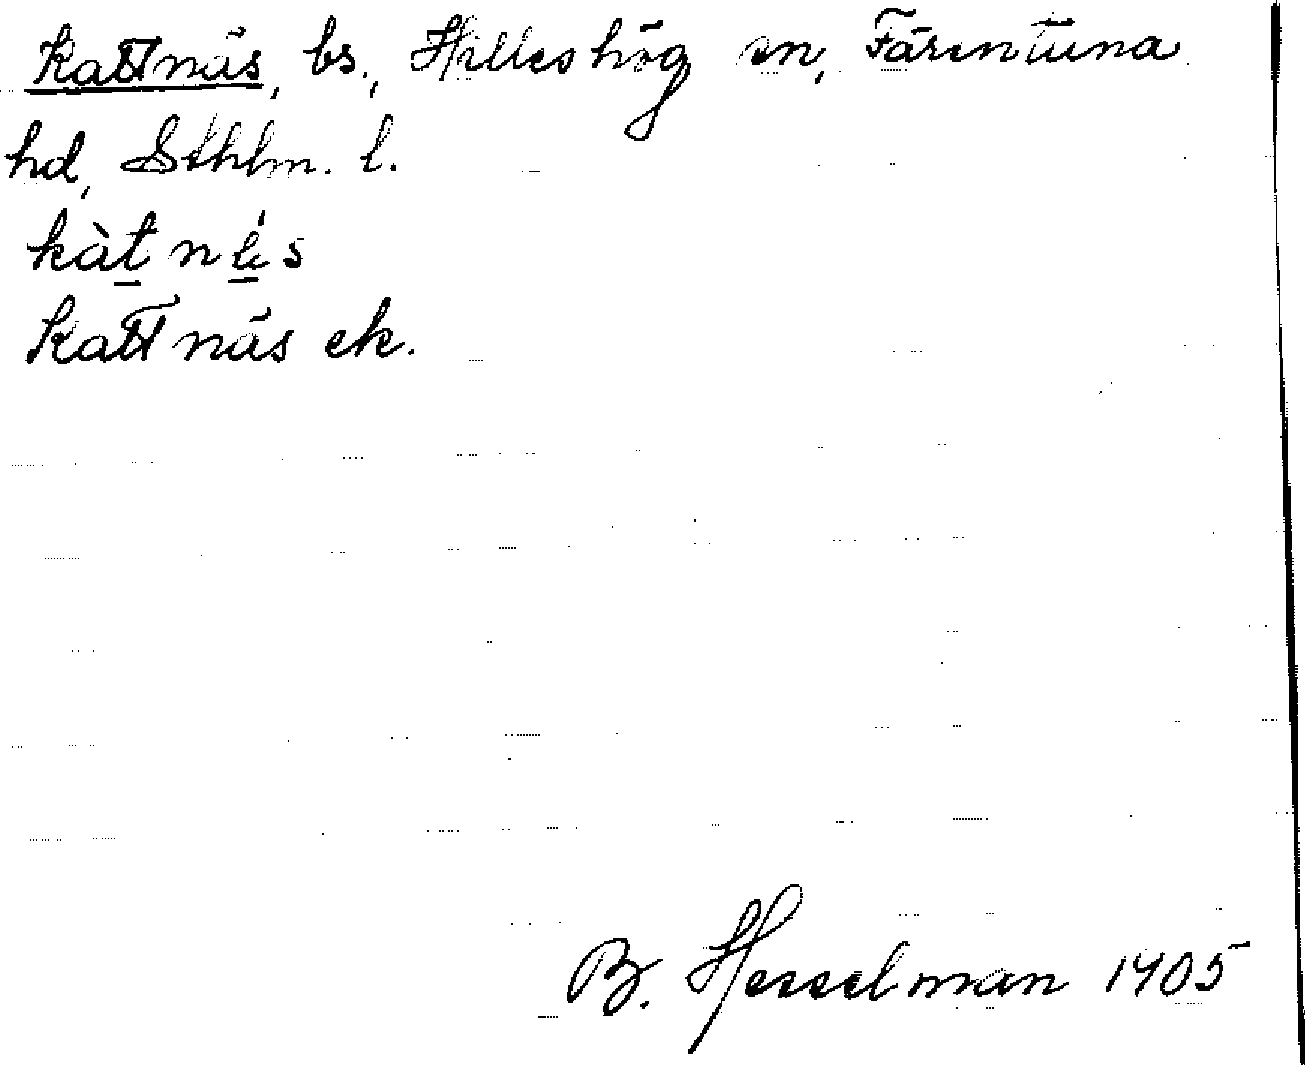 Kattnäs, bs., Hilleshög sn, Färentuna
hd, Sthlm. l.
kàt nǽs
Kattnäs ek.
B. Hesselman 1905